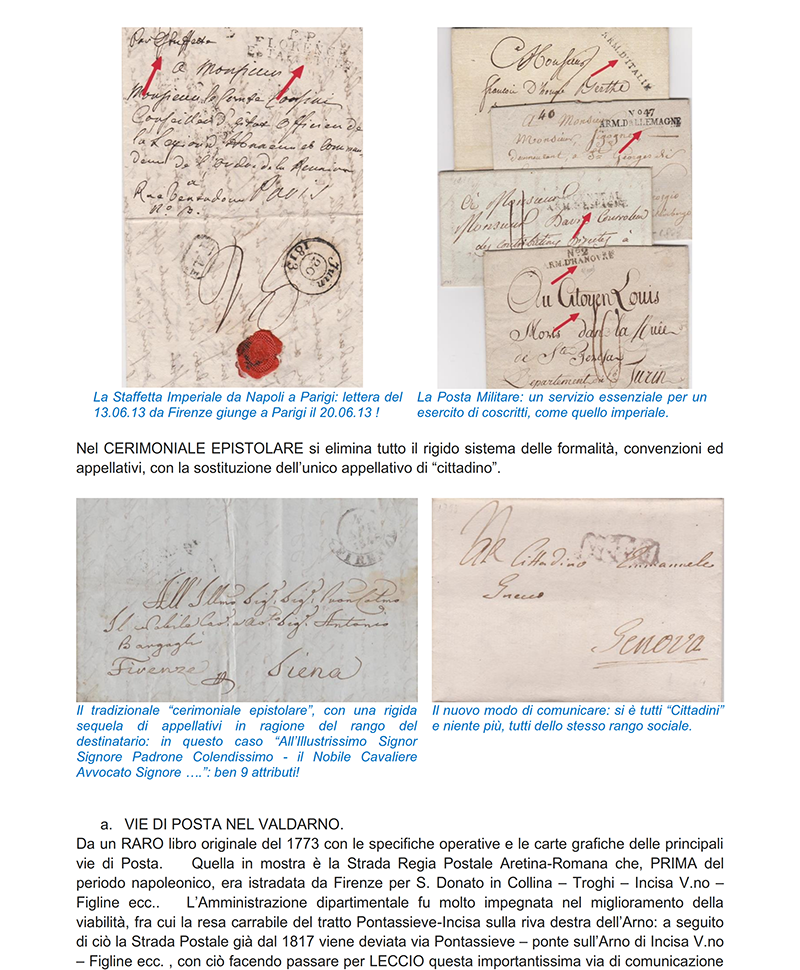 Par Staffetta
P.P.
FLORENCE
A Monsieur
Monsieur le Comte Corsini
Conseiller d'Etat Officier de
la Legion d'Honneur et Comman
deur de l'Ordre de la Reunion
à
Rue Ventadour Paris
No.
Juin
20
1813
ARM. D'ITALIE
A Monsieur
Berthe
N° 47
ARM. D'ALLEMAGNE
A Monsieur
Monsieur
ARM. D'ESPAGNE
A Monsieur
Monsieur
des contributions directes à
N° 2
ARM. D'HANOVRE
Au Citoyen Louis
dans la Rue
de Ste
Departement du
Turin
La Staffetta Imperiale da Napoli a Parigi: lettera del
13.06.13 da Firenze giunge a Parigi il 20.06.13 !
La Posta Militare: un servizio essenziale per un
esercito di coscritti, come quello imperiale.
Nel CERIMONIALE EPISTOLARE si elimina tutto il rigido sistema delle formalità, convenzioni ed
appellativi, con la sostituzione dell'unico appellativo di “cittadino”.
FIRENZE
All'Illmo Sigr. Sigr.
Il Nobile Cav. Sigr. Antonio
Bargagli
Firenze Siena
Al Cittadino Emmanuele
Gnecco
Genova
Il tradizionale “cerimoniale epistolare”, con una rigida
sequela di appellativi in ragione del rango del
destinatario: in questo caso “All'Illustrissimo Signor
Signore Padrone Colendissimo - il Nobile Cavaliere
Avvocato Signore ….”: ben 9 attributi!
Il nuovo modo di comunicare: si è tutti “Cittadini”
e niente più, tutti dello stesso rango sociale.
a. VIE DI POSTA NEL VALDARNO.
Da un RARO libro originale del 1773 con le specifiche operative e le carte grafiche delle principali
vie di Posta. Quella in mostra è la Strada Regia Postale Aretina-Romana che, PRIMA del
periodo napoleonico, era istradata da Firenze per S. Donato in Collina – Troghi – Incisa V.no –
Figline ecc.. L'Amministrazione dipartimentale fu molto impegnata nel miglioramento della
viabilità, fra cui la resa carrabile del tratto Pontassieve-Incisa sulla riva destra dell'Arno: a seguito
di ciò la Strada Postale già dal 1817 viene deviata via Pontassieve – ponte sull'Arno di Incisa V.no
– Figline ecc. , con ciò facendo passare per LECCIO questa importantissima via di comunicazione